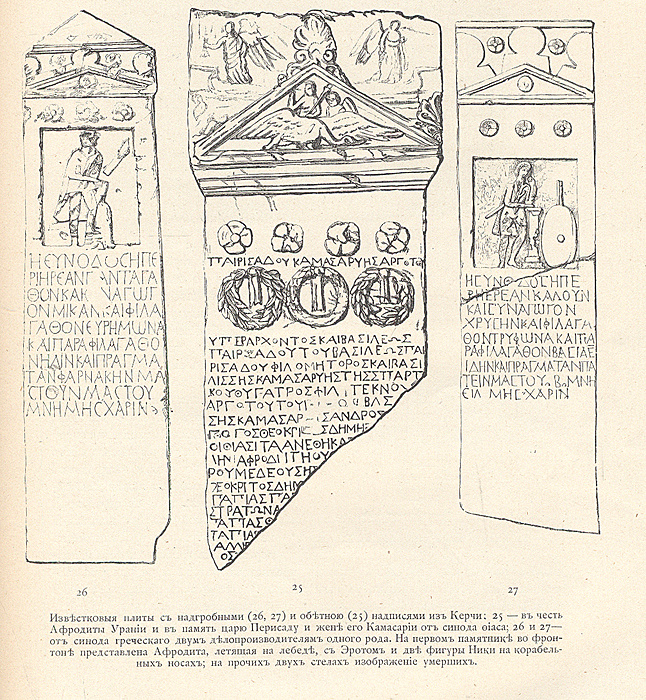 ΗΕΥΝΟΔΟΣΗΠΕ
ΡΙΗΡΕΑΝΓ ΑΝΤΑΓΑ
ΘΟΝΚΑΚ ΝΑΓΩΓ
ΟΝΜΙΚΑΝΚΑΙΦΙΛΑ
ΓΑΘΟΝΕΥΡΗΜΩΝΑ
ΚΑΙΠΑΡΑΦΙΛΑΓΑΘΟ
ΝΗΔΙΝΚΑΙΠΡΑΓΜΑ
ΤΑΝΦΑΡΝΑΚΗΝΜΑ
ΣΤΟΥΝΜΑΣΤΟΥ
ΜΝΗΜΗΣΧΑΡΙΝ
ΠΑΙΡΙΣΑΔΟΥΚΑΜΑΣΑΡΥΗΣΑΡΓΟΤΟΥ
ΥΠΕΡΑΡΧΟΝΤΟΣΚΑΙΒΑΣΙΛΕΩΣ
ΠΑΙΡΙΣΑΔΟΥΤΟΥΒΑΣΙΛΕΩΣΠΑΙ
ΡΙΣΑΔΟΥΦΙΛΟΜΗΤΟΡΟΣΚΑΙΒΑΣΙ
ΛΙΣΣΗΣΚΑΜΑΣΑΡΥΗΣΤΗΣΣΠΑΡΤ
ΚΟΥΘΥΓΑΤΡΟΣΦΙΛ ΤΕΚΝΟΥ
ΑΡΓΟΤΟΥΤΟΥΙ
ΣΗΣΚΑΜΑΣΑΡ ΣΑΝΔΡΟΣ
ΟΙΘΙΑΣΙΤΑΑΝΕΘΗΚΑ
ΑΦΡΟΔΙΤΗΟΥ
ΡΟΥΜΕΔΕΟΥΣΗΣ
ΘΕΟΚΡΙΤΟΣΔΗΜ
ΠΑΠΙΑΣΠΑ
ΣΤΡΑΤΩΝΑ
ΗΣΥΝΟΔΟΣΗΠΕ
ΡΙΙΕΡΕΑΝΚΑΛΟΥΝ
ΚΑΙΣΥΝΑΓΩΓΟΝ
ΧΡΥΓΗΝΚΑΙΦΙΛΑΓΑ
ΘΟΝΤΡΥΦΩΝΑΚΑΙΠΑ
ΡΑΦΙΛΑΓΑΘΟΝΒΑΣΙΑΕ
ΙΔΗΝΚΑΙΠΡΑΓΜΑΤΑΝΠΑ
ΜΗΣΧΑΡΙΝ
26
25
27
Известковыя плиты съ надгробными (26, 27) и обѣтною (25) надписями изъ Керчи: 25 — въ честь
Афродиты Ураніи и въ память царю Перисаду и женѣ его Камасаріи отъ синода ѳіаса; 26 и 27—
отъ синода греческаго двумъ дѣлопроизводителямъ одного рода. На первомъ памятникѣ во фрон-
тонѣ представлена Афродита, летящая на лебедѣ, съ Эротомъ и двѣ фигуры Ники на корабель-
ныхъ носахъ; на прочихъ двухъ стелахъ изображеніе умершихъ.